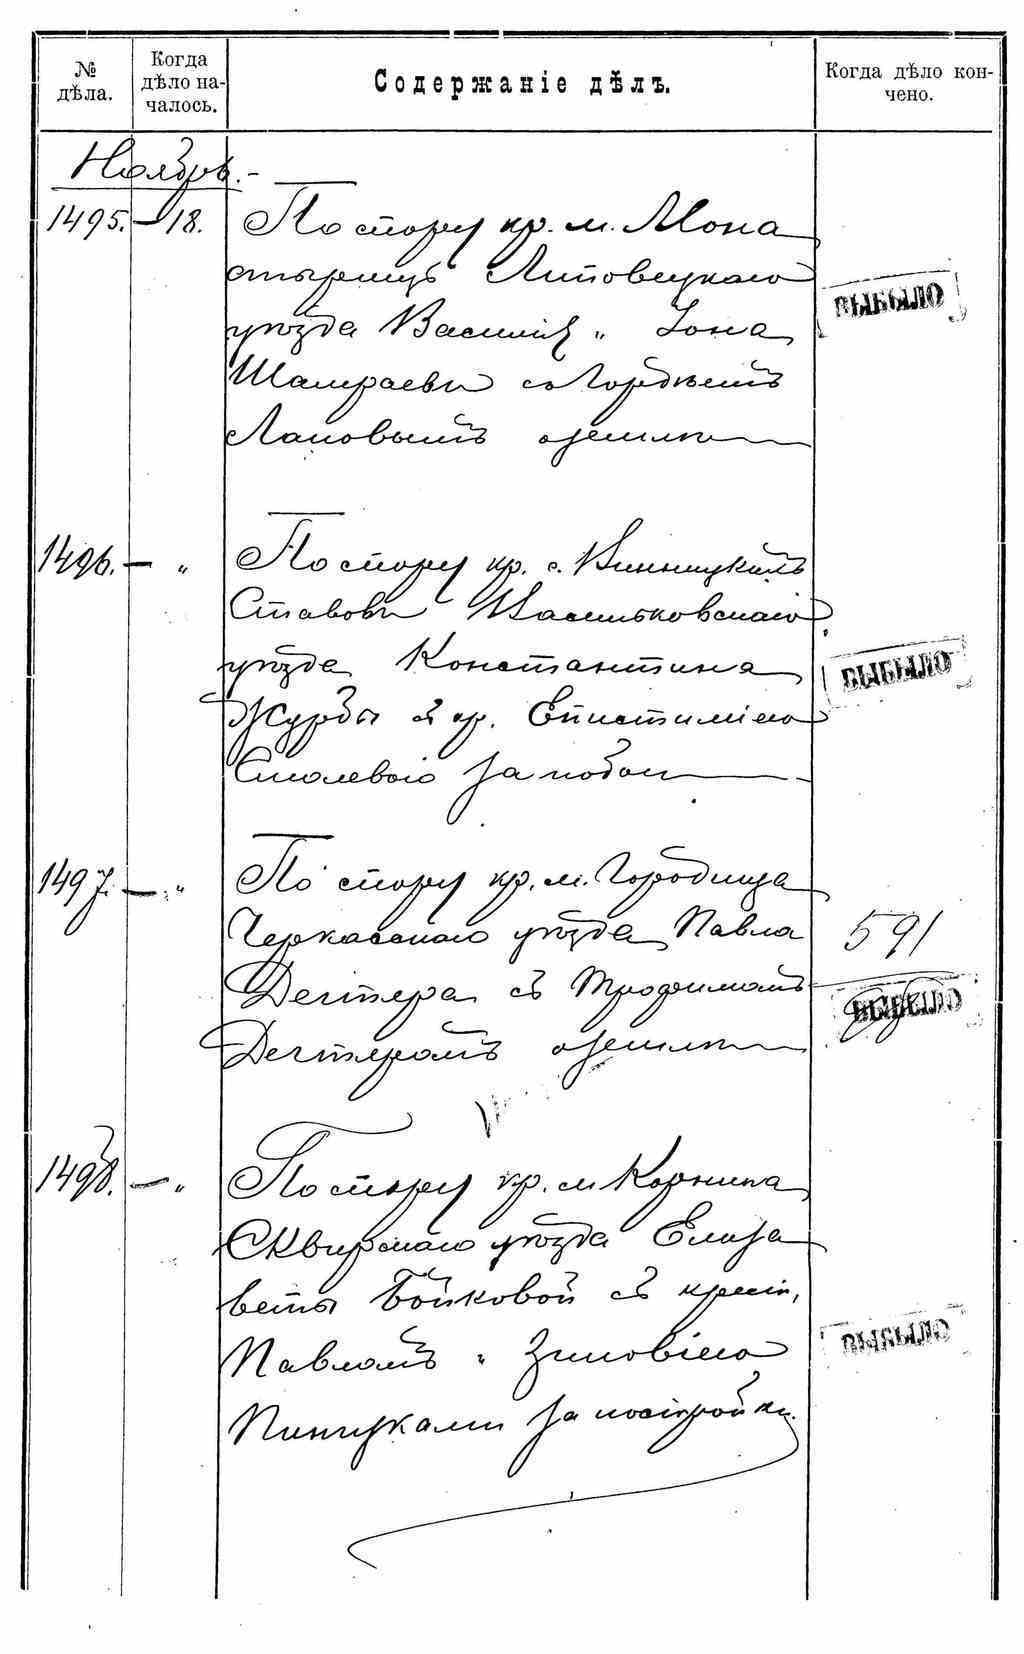 № дѣла.
Когда дѣло на-
чалось.
Содержаніе дѣлъ.
Когда дѣло кон-
чено.
Ноябрь.-
1495. — 18.
По спору кр. м. Мона
стырищъ Липовецкаго
уѣзда Василія и Іона
Шамраевы съ Гордѣемъ
Лановымъ о землѣ
ВЫБЫЛО
1496. — „
По спору кр. с. Винницкихъ
Ставовъ Васильковскаго
уѣзда Константина
Журбы съ кр. Епистиміею
за побои
ВЫБЫЛО
1497. — „
По спору кр. м. Городища
Черкасскаго уѣзда Павла
Дегтяра съ Трофимомъ
Дегтяромъ о землѣ
591
ВЫБЫЛО
1498. — „
По спору кр. м. Корнина
Сквирскаго уѣзда Елиза
веты Бойковой съ крест.
Павломъ и Зиновіею
за постройки.
ВЫБЫЛО